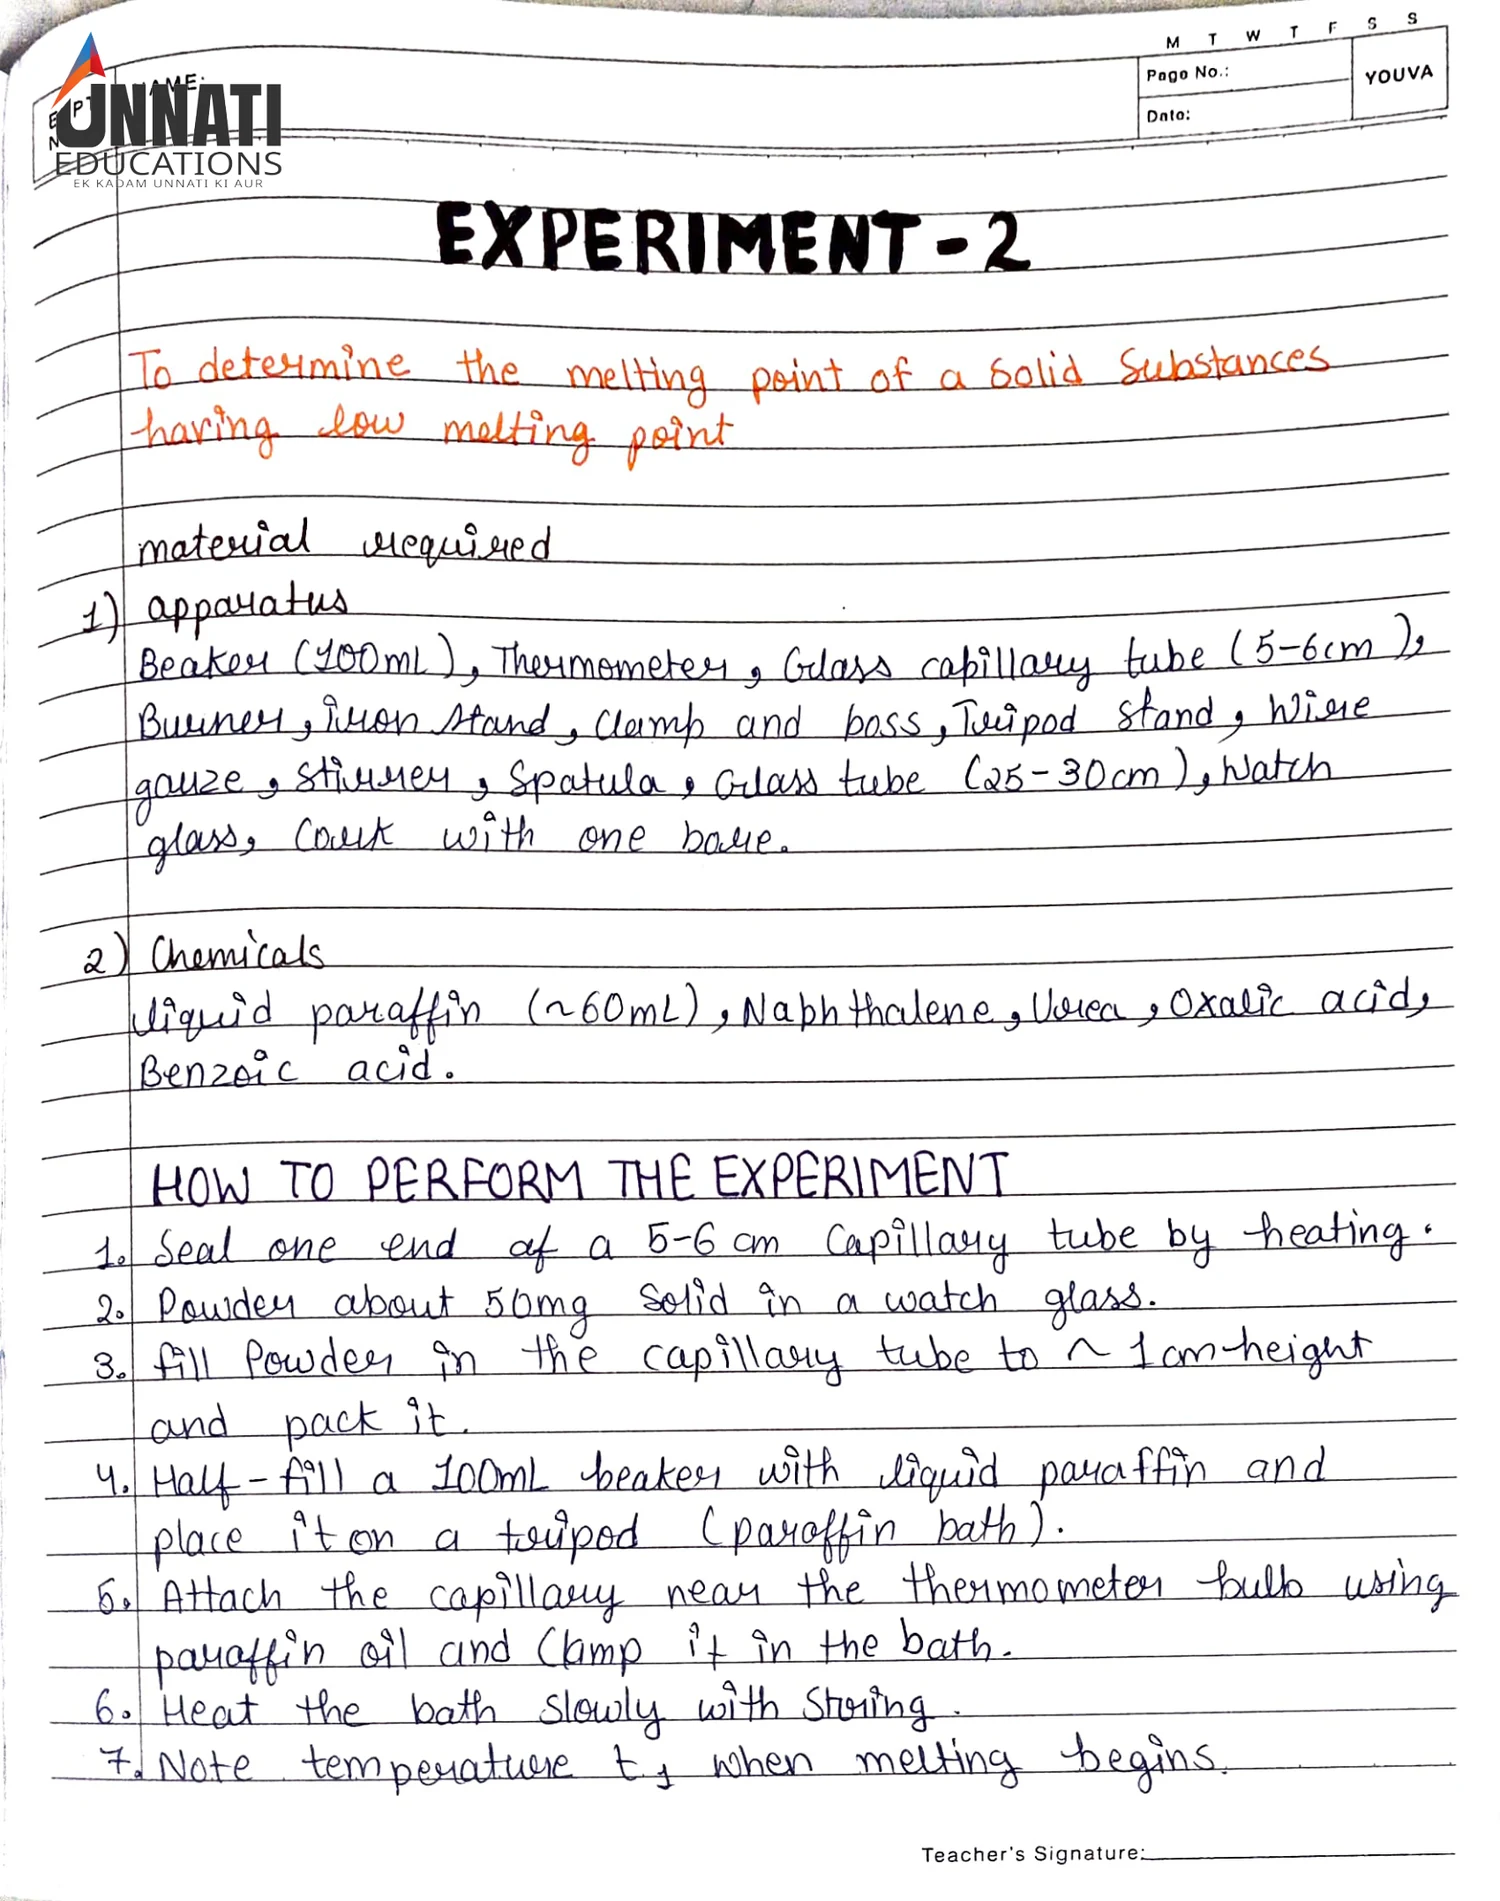 M T W T F S S
Page No.:
Date:
YOUVA
UNNATI
EDUCATIONS
EK KADAM UNNATI KI AUR
EXPERIMENT - 2
To determine the melting point of a solid Substances
having low melting point
material required
1) apparatus
Beaker (100mL), Thermometer, Glass capillary tube (5-6cm),
Burner, iron stand, Clamp and boss, Tripod stand, Wire
gauze, stirrer, Spatula, Glass tube (25-30cm), Watch
glass, Cork with one bore.
2) Chemicals
liquid paraffin (~60mL), Naphthalene, Urea, Oxalic acid,
Benzoic acid.
HOW TO PERFORM THE EXPERIMENT
1. Seal one end of a 5-6 cm Capillary tube by heating.
2. Powder about 50mg Solid in a watch glass.
3. fill Powder in the capillary tube to ~ 1cm height
and pack it.
4. Half-fill a 100mL beaker with liquid paraffin and
place it on a tripod (paraffin bath).
5. Attach the capillary near the thermometer bulb using
paraffin oil and Clamp it in the bath.
6. Heat the bath slowly with Stiring.
7. Note temperature t₁ when melting begins.
Teacher's Signature: